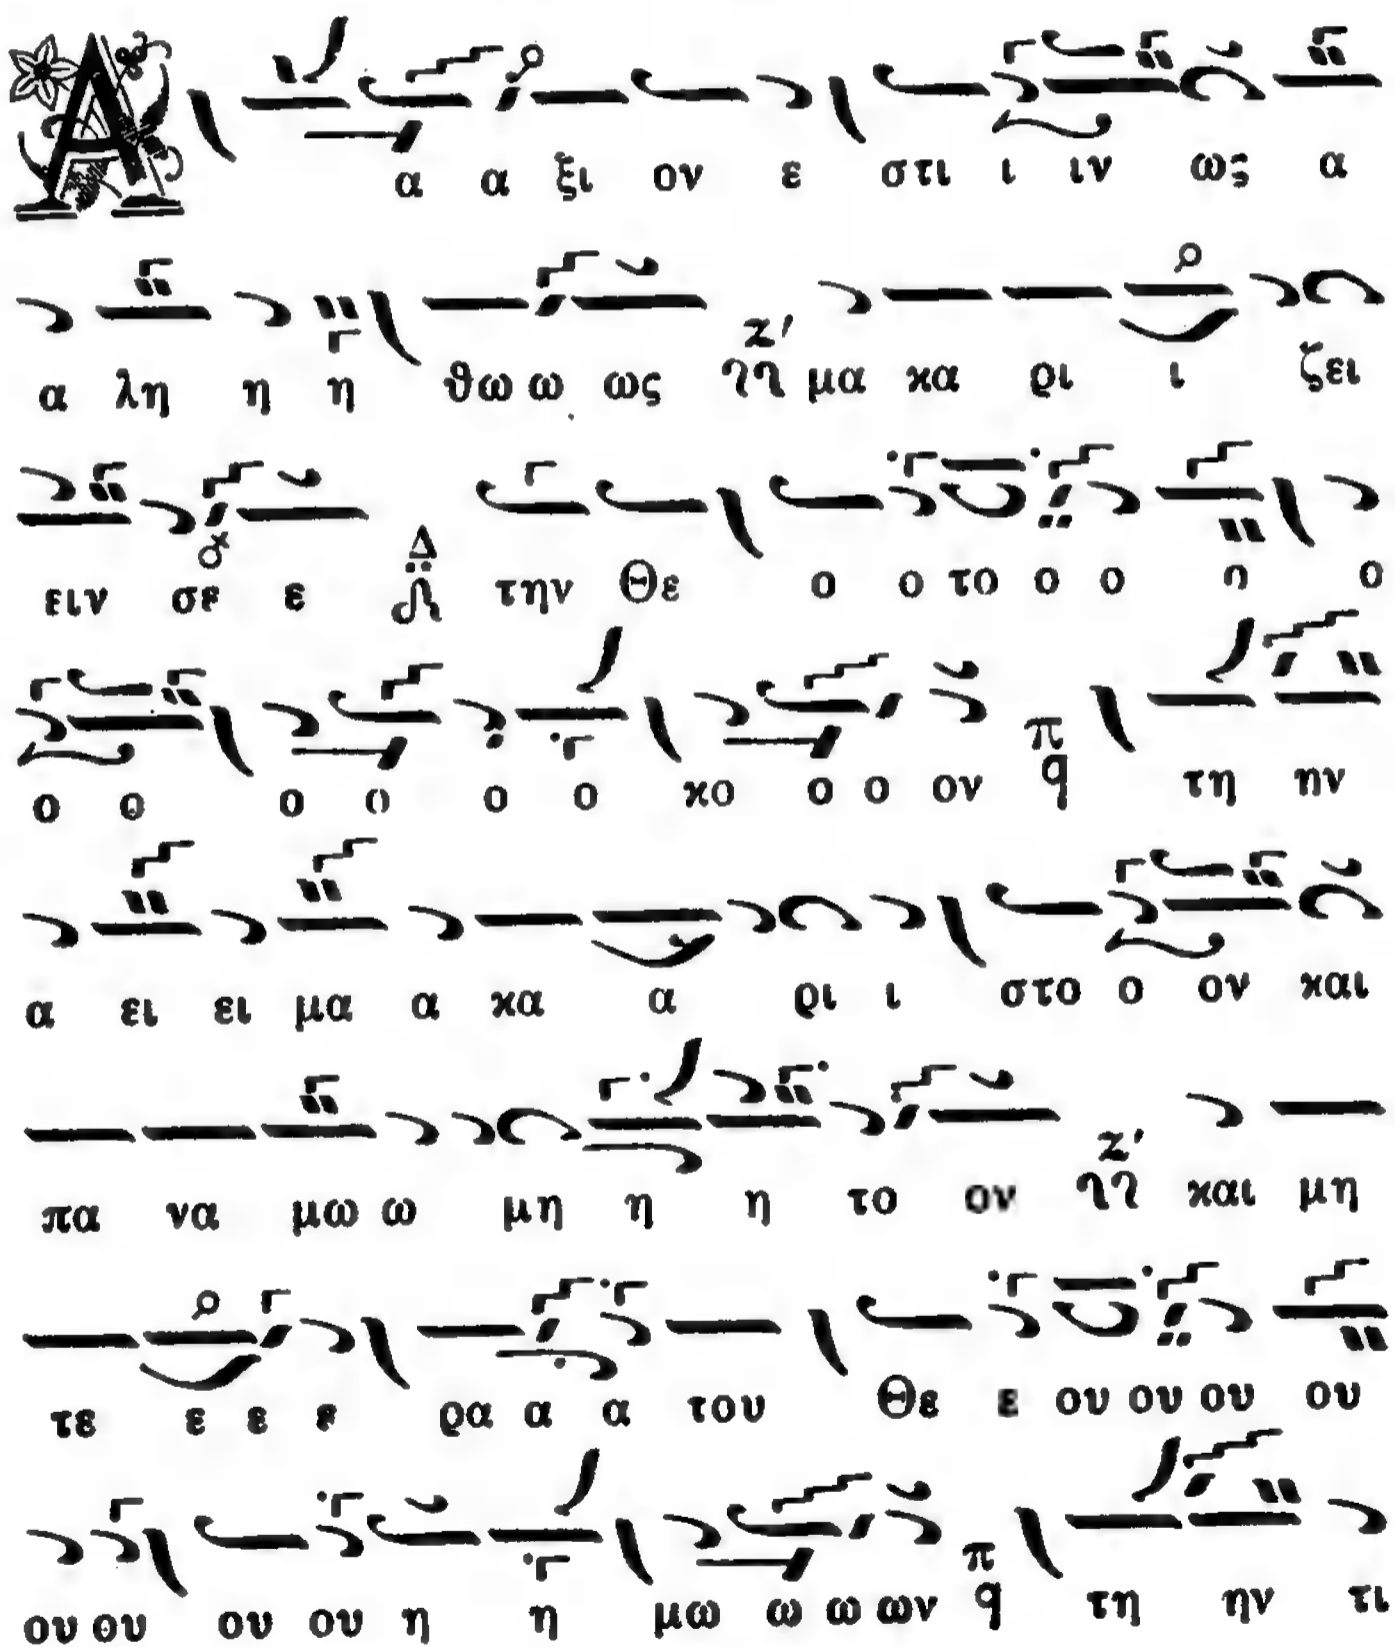 Α α α ξι ον ε στι ι ιν ως α
α λη η η θω ω ως ζ′ μα κα ρι ι ζει
ειν σε ε Δ την Θε ο ο το ο ο ο ο
ο ο ο ο ο ο κο ο ο ον π q τη ην
α ει ει μα α κα α ρι ι στο ο ον και
πα να μω ω μη η η το ον ζ′ και μη
τε ε ε ε ρα α α του Θε ε ου ου ου ου
ου ου ου ου η η μω ω ω ων π q τη ην τι